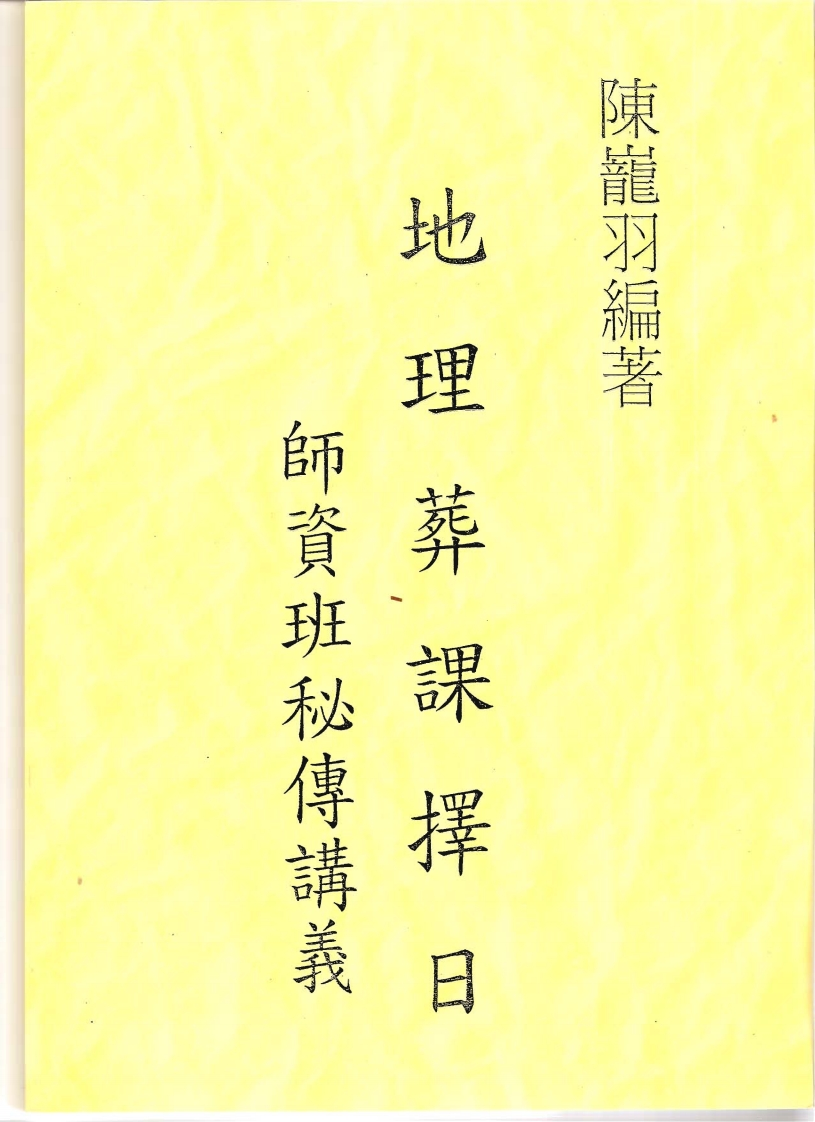 陳巃羽編著
地理葬課擇日
師資班秘傳講義